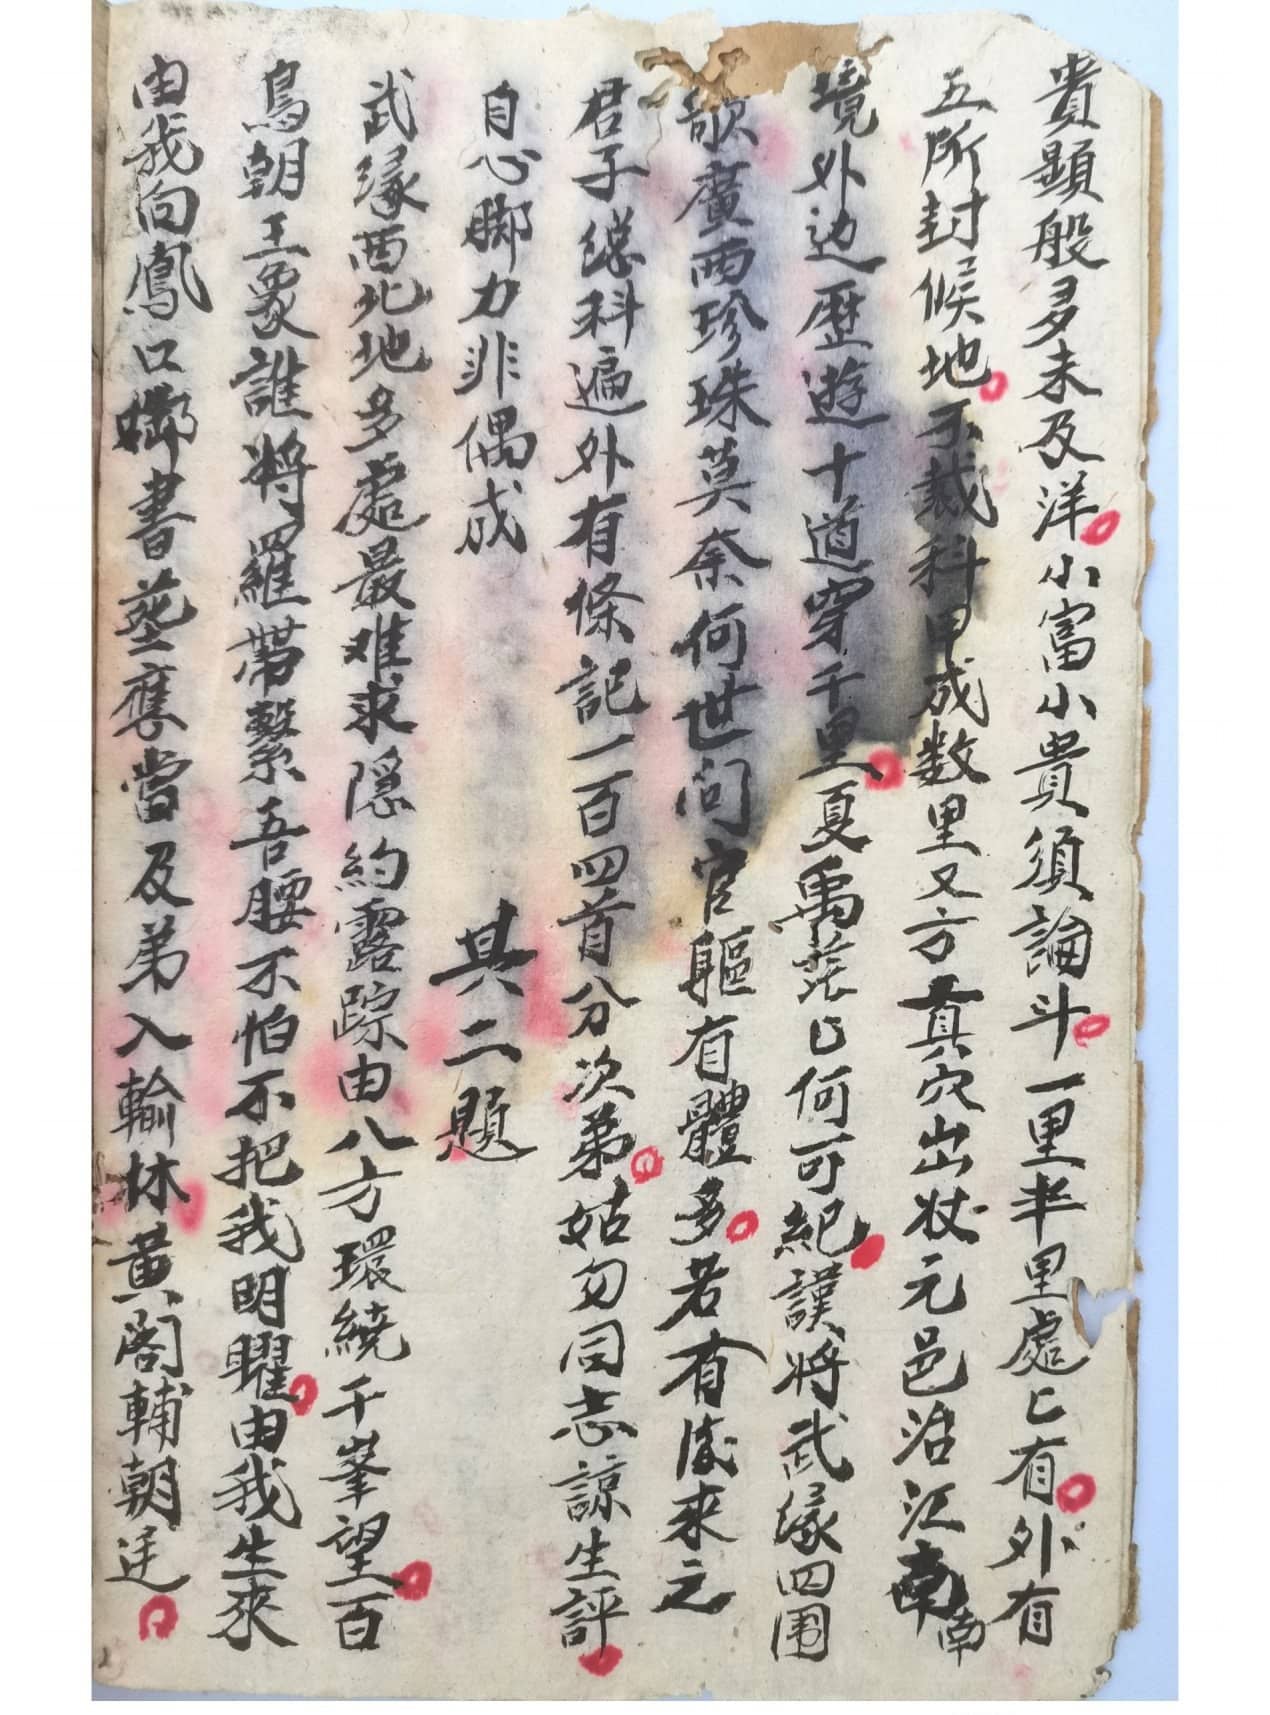 貴顕般多未及洋小富小貴須論斗一里半里處匕有外有
五所封候地不裁科甲成数里又方真穴出状元邑治江南南
境外边歷遊十道穿千里夏禹茫匕何可紀謹將武缘四围
歌廣西珍珠莫奈何世间官軀有體多若有後來之
君子繼科遍外有條記一百四首分次弟姑勿同志諒生評
自心脚力非偶成 其二題
武缘西北地多處最难求隱約露踪由八方環繞千峯望百
鳥朝王衆誰將羅帶繫吾腰不怕不把我明曜由我生來
由我向鳳口啣書塟應當及弟入輸林黄阁輔朝廷